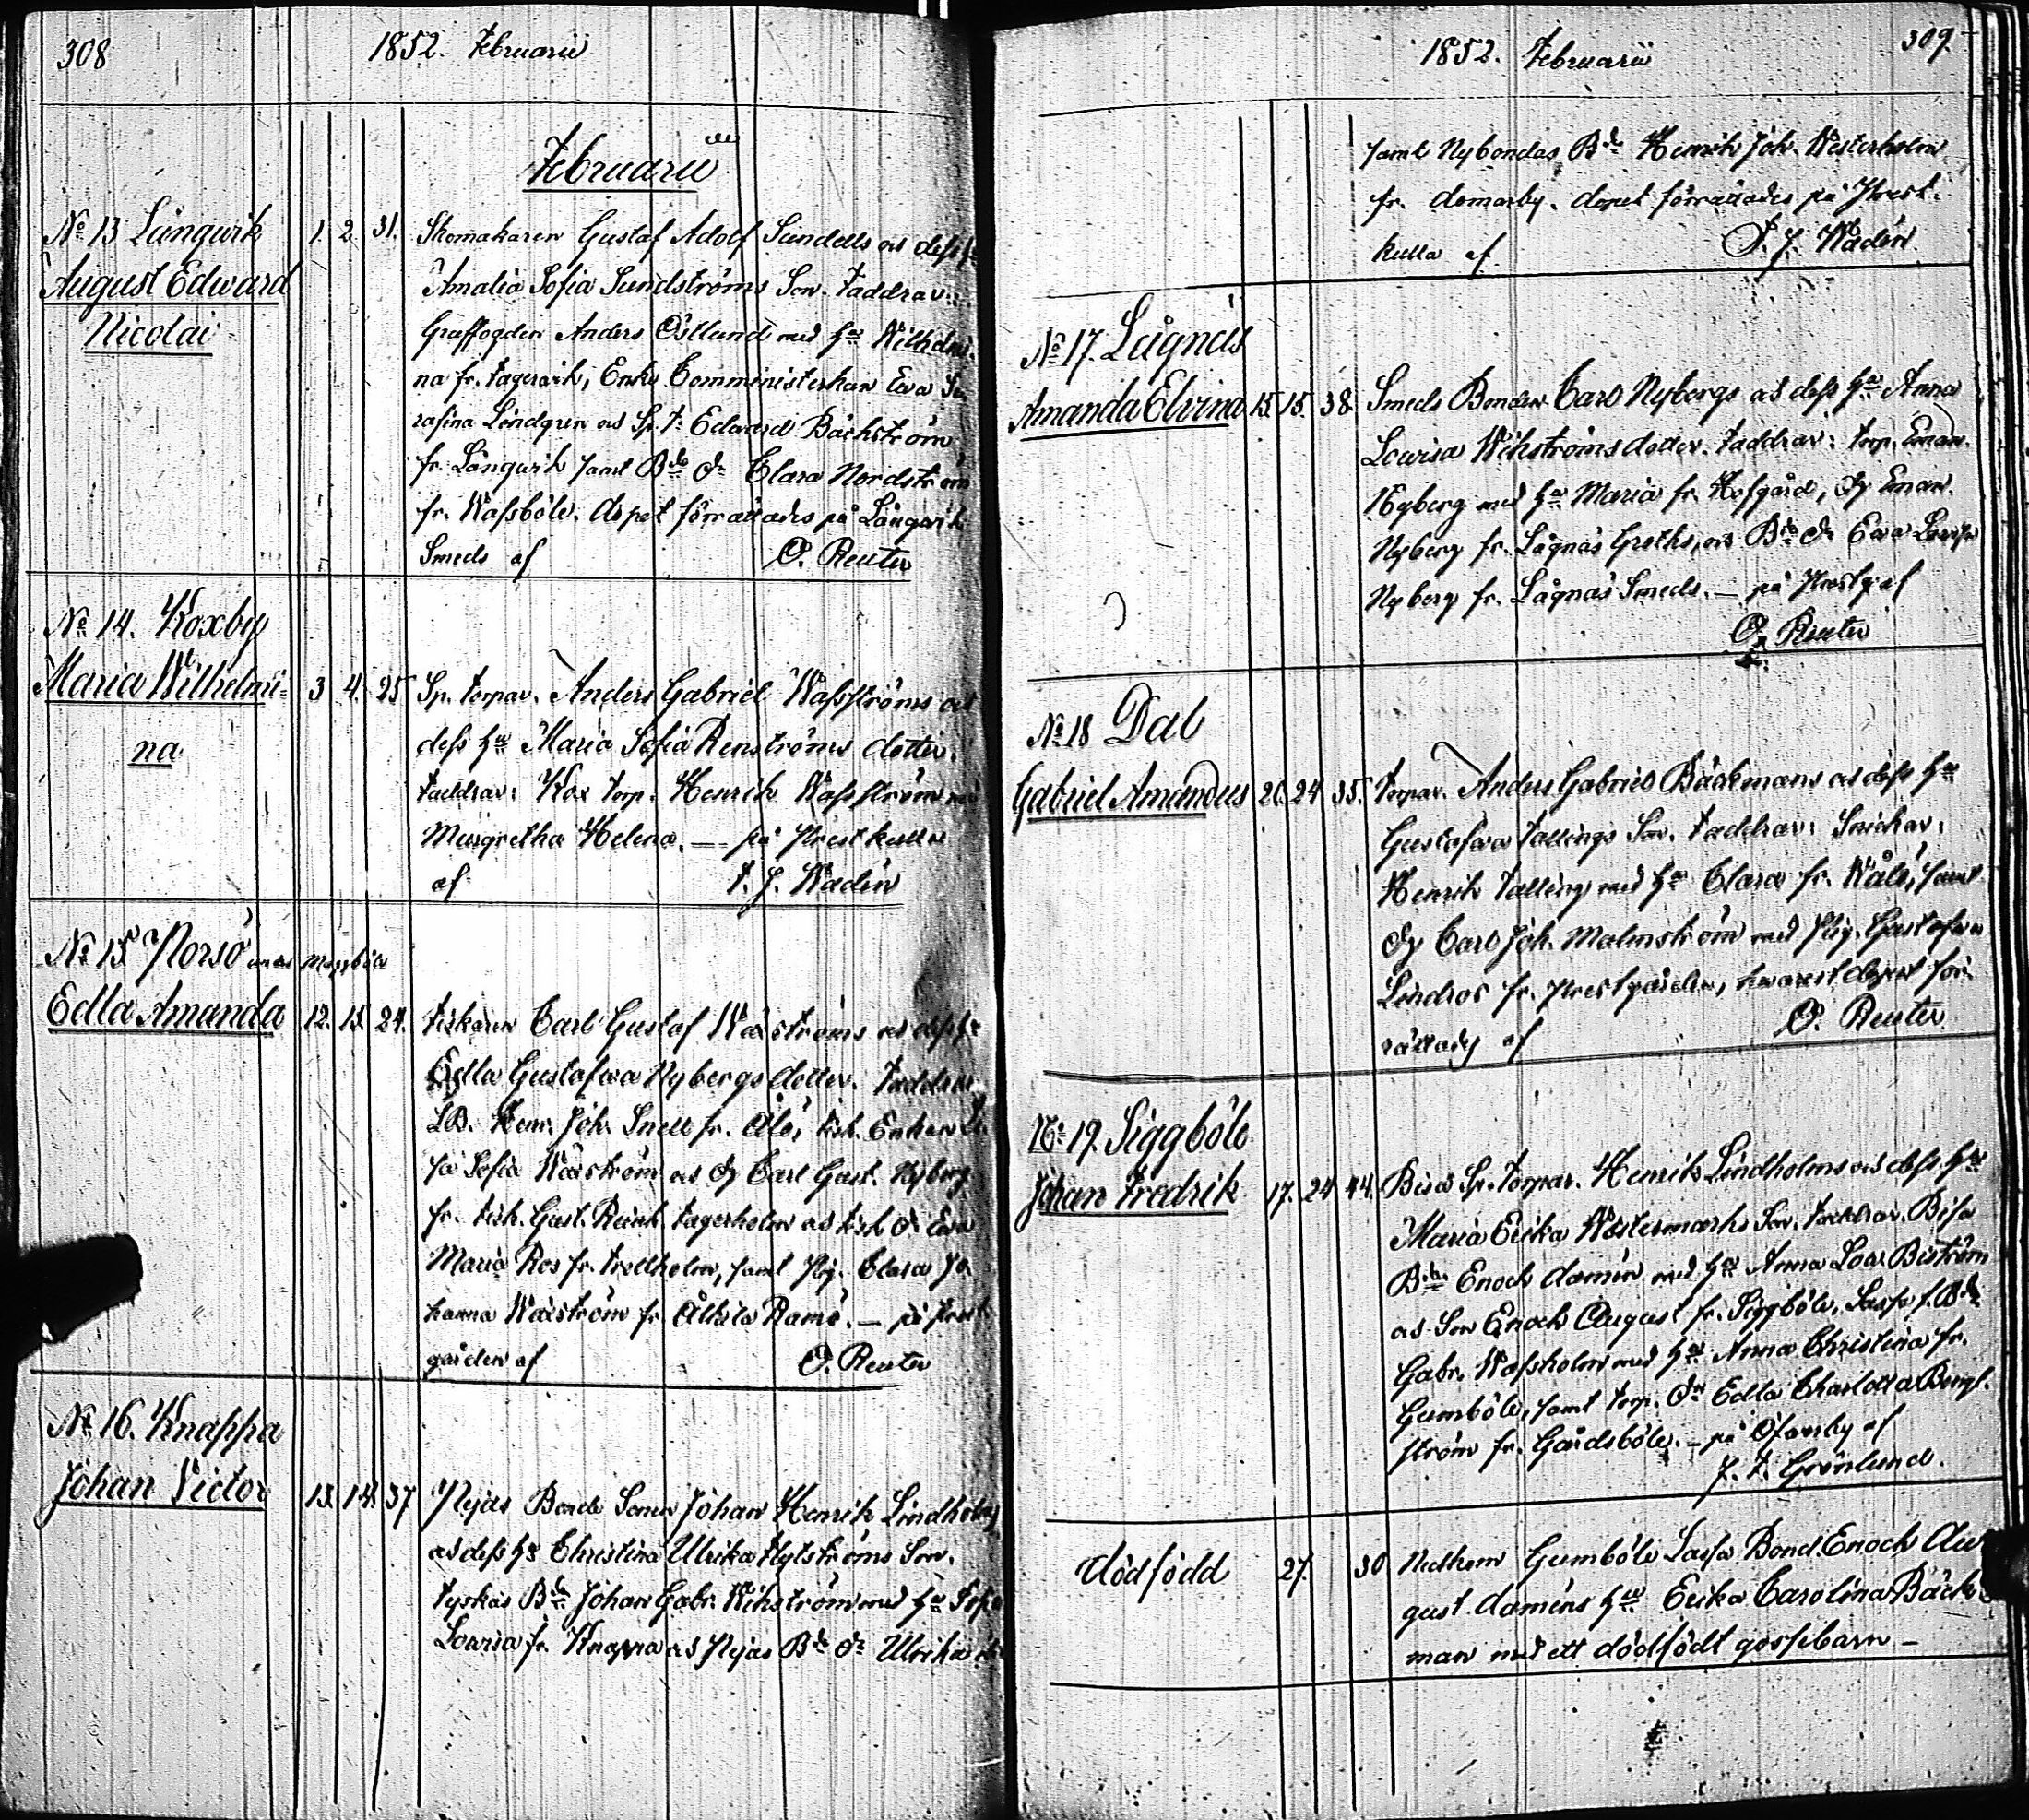 308
1852. Februarii
Februarii
No 13 Långwik
August Edward
Nicolai
1. 2. 31.
Skomakaren Gustaf Adolf Sundells os dess h
Amalia Sofia Sundströms Son. Faddrar:
Anders Östlund med hu Wilhelmi-
na fr. Enke Comministerskan Eva
Lindgren os Edward Bäckström
fr. Långwik samt Bde dr Clara Nordström
fr. Wassböle. dopet förrättades på Långwik
Smeds af O. Reuter
No 14. Koxby
Maria Wilhelmi-
na
3 4. 25
Sp. torpar. Anders Gabriel Wassströms os
dess hu Maria Sofia Renströms dotter.
Faddrar: Kox torp. Henrik Wassström
Margretha Helena. — på Prestkulla
af F. J. Wadén
No 15 Norsö
Edla Amanda
12. 15. 24.
Fiskaren Carl Gustaf Wäströms os dess h
Edla Gustafwa Nybergs dotter. Faddrar
Henr. Joh. Snell fr. Ålö, fisk. Enkan
Sofia Wäström os dg Carl Gust. Nyberg
fr. fisk. Gust. Reinh. Fagerholm os fisk dr Eva
Maria Ros fr. samt Pig. Clara Jo-
hanna Wäström fr. Ramsö. — på Prest
gården af O. Reuter
No 16. Knappa
Johan Victor
13. 14. 37
Nyäs Bonde Sonen Johan Henrik Lindholms
os dess hu Christina Ulrika Son.
Tyskas Bde Johan Gabr. Wikström med hu Sofia
Lovisa fr. Knappa os Nyäs Bde dr Ulrika
1852. Februarii
309.
samt Nybondas Bde Henrik Joh. Westerholm
fr. Domarby. dopet förrättades på Prest-
kulla af F. J. Wadén
No 17. Lågnäs
Amanda Elvina
15. 15. 38.
Smeds Bonden Carl Nybergs os dess hu Anna
Lowisa Wikströms dotter. Faddrar: torp. Eman.
Nyberg med hu Maria fr. Hofgård, dg Eman.
Nyberg fr. Lågnäs Greths, os Bde dr Eva Lovisa
Nyberg fr. Lågnäs Smeds. — på Prestg af
O. Reuter
No 18 Dal
Gabriel Amandus
20. 24 35.
Torpar. Anders Gabriel Bäckmans os dess hu
Gustafwa Tallings Son. Faddrar: Snickar.
Henrik Talling med hu Clara fr. samt
dg Carl Joh. Malmström med Pig. Gustafwa
Lindros fr. Prestgården, hwarest dopet för-
rättades af O. Reuter
No 19. Siggböle
Johan Fredrik
17. 24 44.
Bisa Sp. Torpar. Henrik Lindholms os dess hu
Maria Erika Westermarks Son. Faddrar. Bisa
Bde Enoch Damén med hu Anna Lovisa Biström
os Son Enoch August fr. Siggböle, Lassa f. Bde
Gabr. Wassholm med hu Anna Christina fr.
Gumböle, samt torp. dr Edla Charlotta Berg-
ström fr. Gårdsböle. — på Öfwerby af
J. F. Grönlund.
dödfödd
27. 30
Nedkom Gumböle Lassa Bond. Enoch Au-
gust Daméns hu Erika Carolina Bäck-
man med ett dödfödt gossebarn —